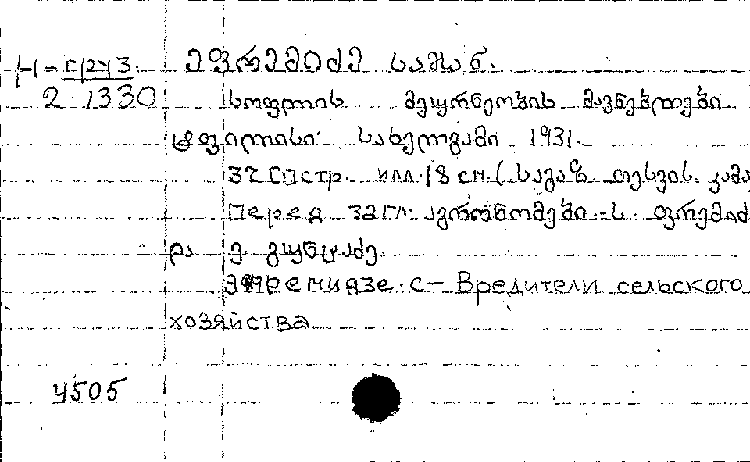 Н-груз
2 1330
ეფრემიძე სამსონ.
სოფლის მეურნეობის მავნებლები
ტფილისი. სახელგამი 1931.
32 стр. илл. 18 см. (საგაზ. თესვის.
Перед загл. აგრონომები ს.
და ე.
Эфремидзе с - Вредители сельского
хозяйства
4505